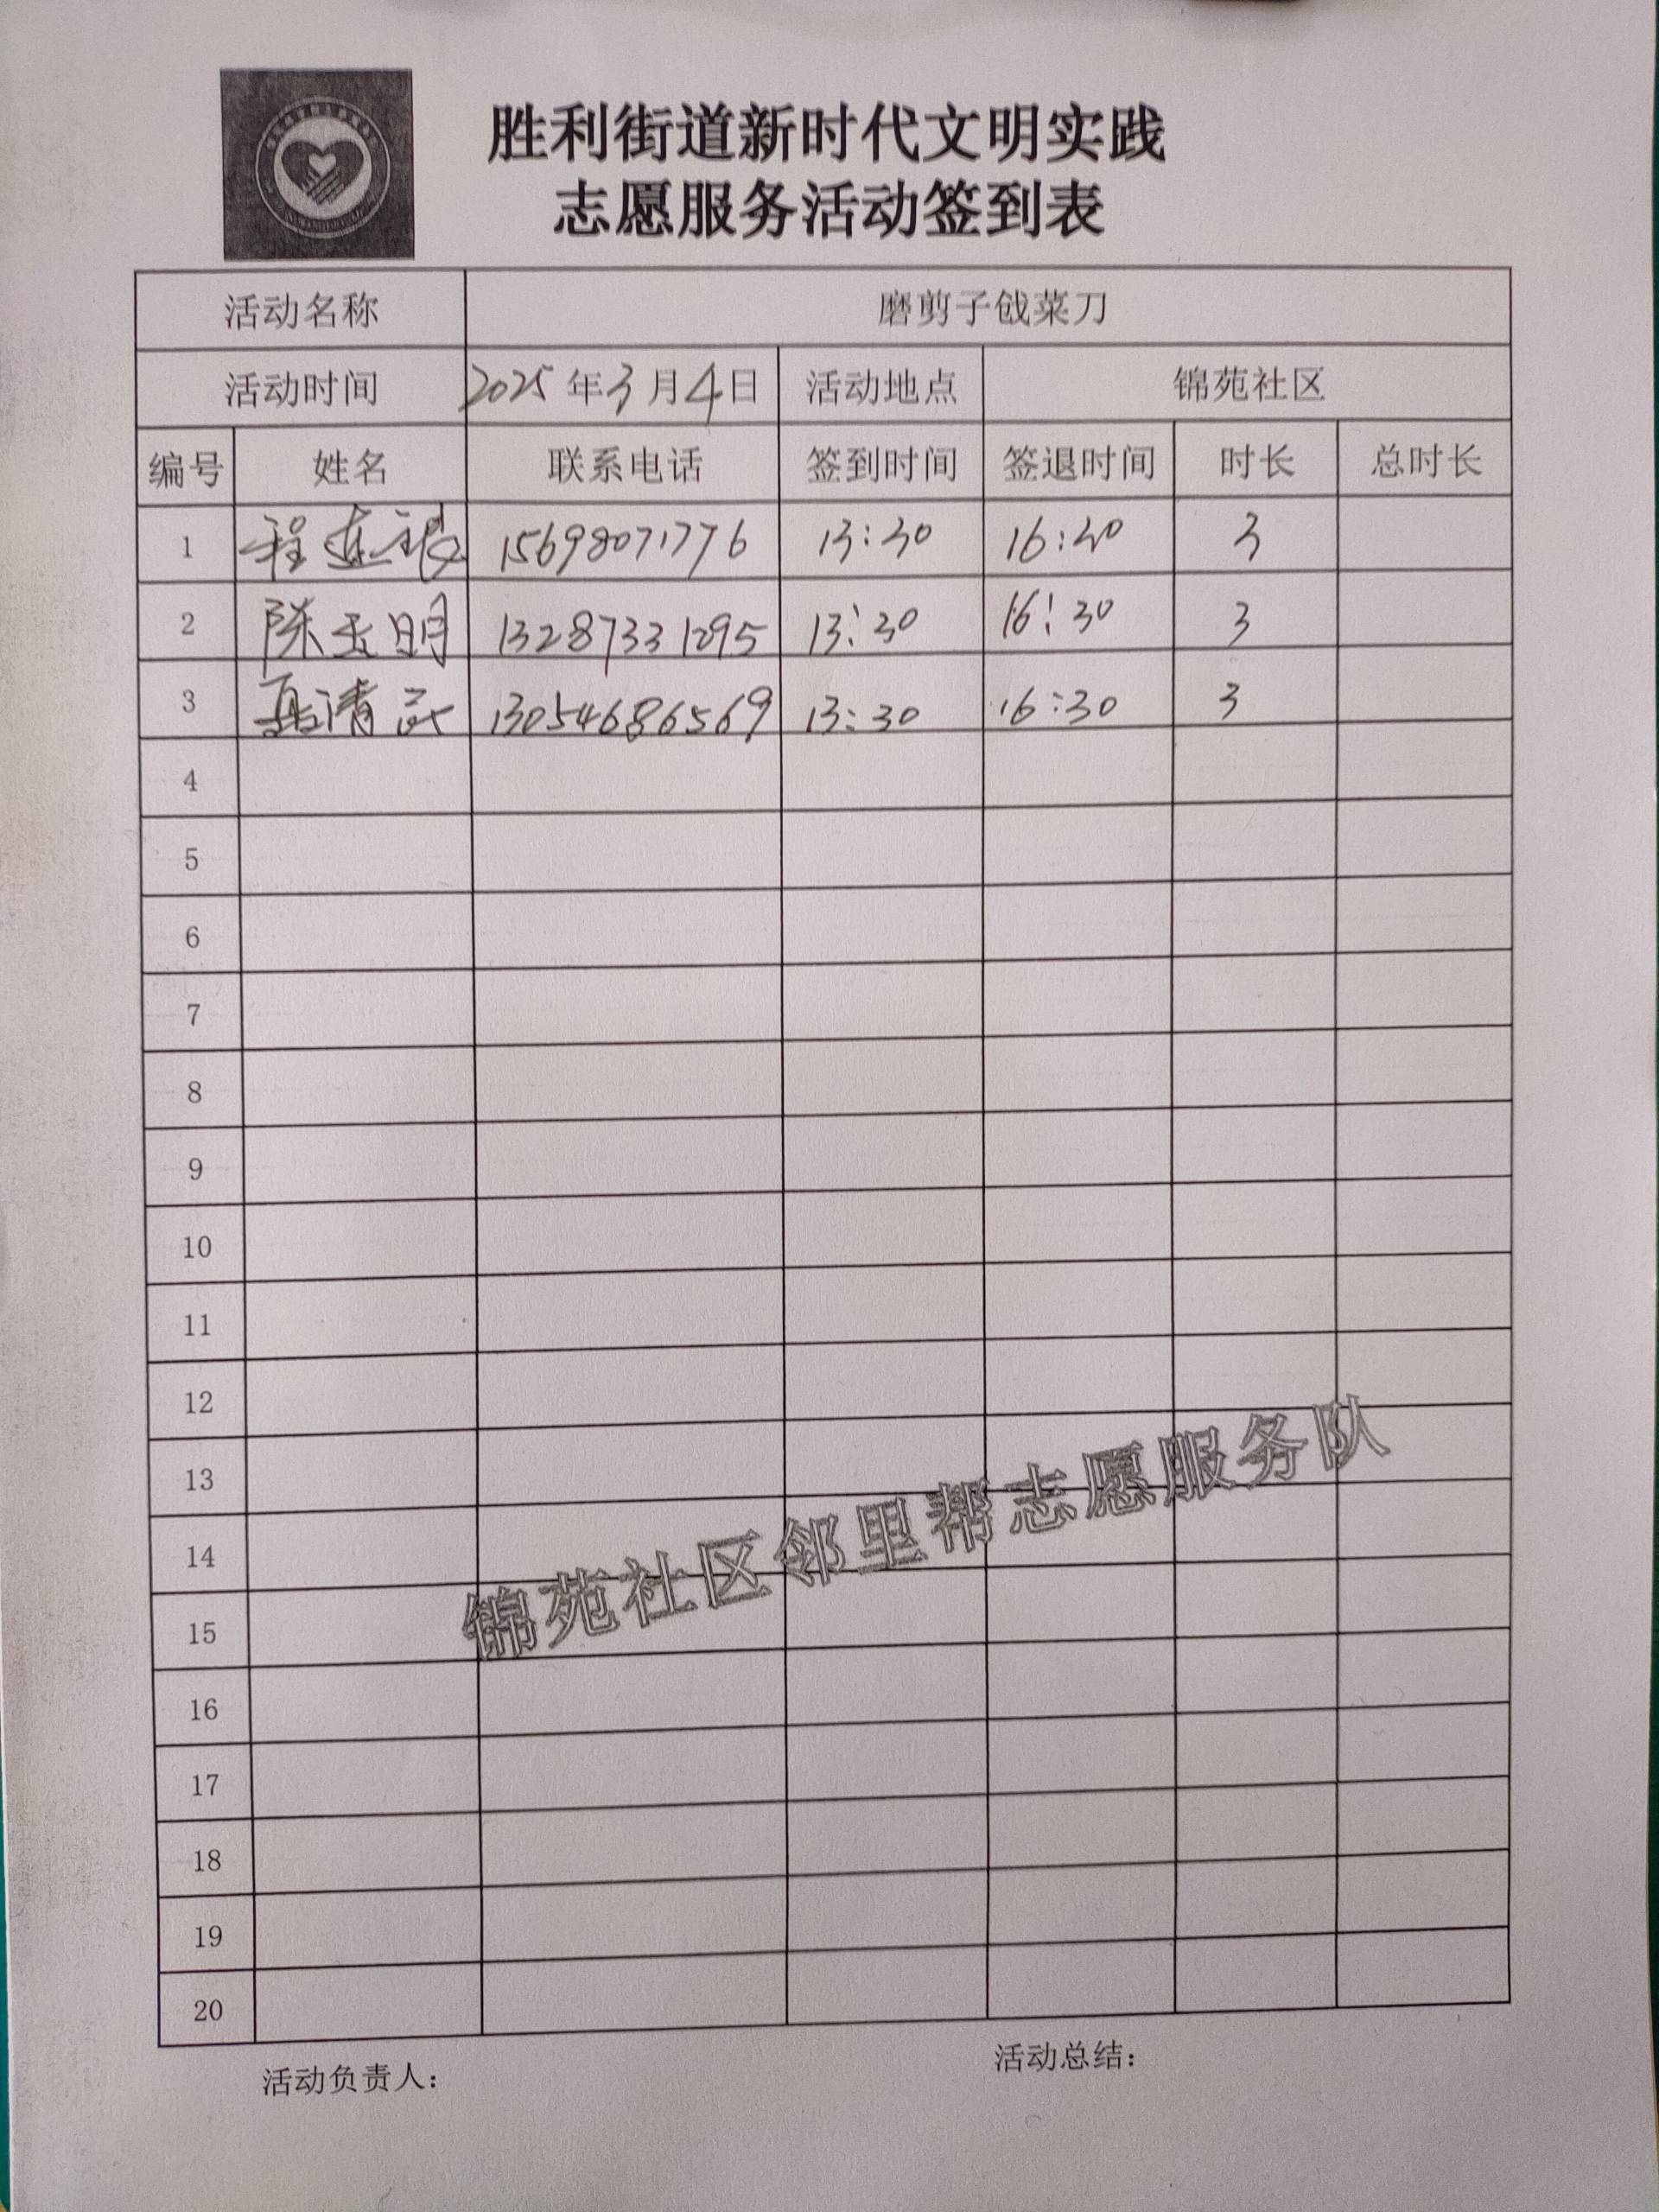 胜利街道新时代文明实践
志愿服务活动签到表
活动名称 磨剪子戗菜刀
活动时间 2025年3月4日 活动地点 锦苑社区
编号 姓名 联系电话 签到时间 签退时间 时长 总时长
1 程 15698071776 13:30 16:30 3
2 陈玉明 13287331295 13:30 16:30 3
3 清 13054686569 13:30 16:30 3
4
5
6
7
8
9
10
11
12
13
14
15
16
17
18
19
20
锦苑社区邻里帮志愿服务队
活动负责人：
活动总结：